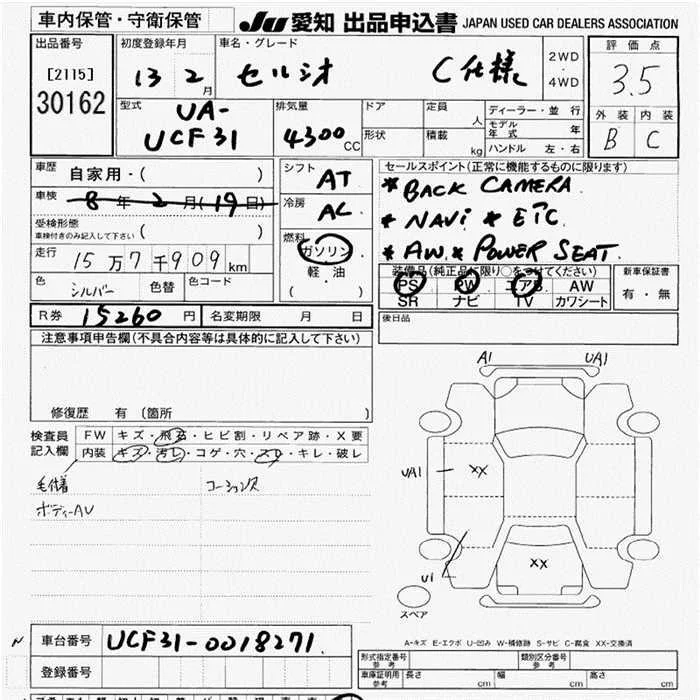 車内保管・守衛保管
JU 愛知 出品申込書 JAPAN USED CAR DEALERS ASSOCIATION
出品番号
[2115]
30162
初度登録年月
13 2月
車名・グレード
セルシオ C仕様
2WD
・
4WD
評価点
3.5
外装 内装
B C
型式
UA-
UCF31
排気量
4300 CC
ドア
形状
定員 人
積載 kg
ディーラー・並行
モデル年式 年
ハンドル 左・右
車歴 自家用・( )
車検 8年2月(19日)
受検形態
車検付きのみ記入して下さい ( )
走行 15万7千909km
色 シルバー 色替 色コード
シフト AT
冷房 AC
燃料
ガソリン
軽油
( )
セールスポイント(正常に機能するものに限ります)
*BACK CAMERA
*NAVi *ETC
*AW *POWER SEAT
装備品(純正品に限り○をつけてください)
PS PW エアB AW
SR ナビ TV カワシート
新車保証書
有・無
R券 15260円 名変期限 月 日
後日品
注意事項申告欄(不具合内容等は具体的に記入して下さい)
修復歴 有 〔箇所 〕
検査員
記入欄
FW キズ・飛石・ヒビ割・リペア跡・X要
内装 キズ・汚レ・コゲ・穴・スレ・キレ・破レ
ボディーAU
A1 UA1
UA1 XX
XX
U1
スペア
A-キズ E-エクボ U-凹み W-補修跡 S-サビ C-腐食 XX-交換済
車台番号 UCF31-0018271
登録番号
形式指定番号 参考
類別区分番号 参考
車庫証明用 参考 長さ cm 幅 cm 高さ cm